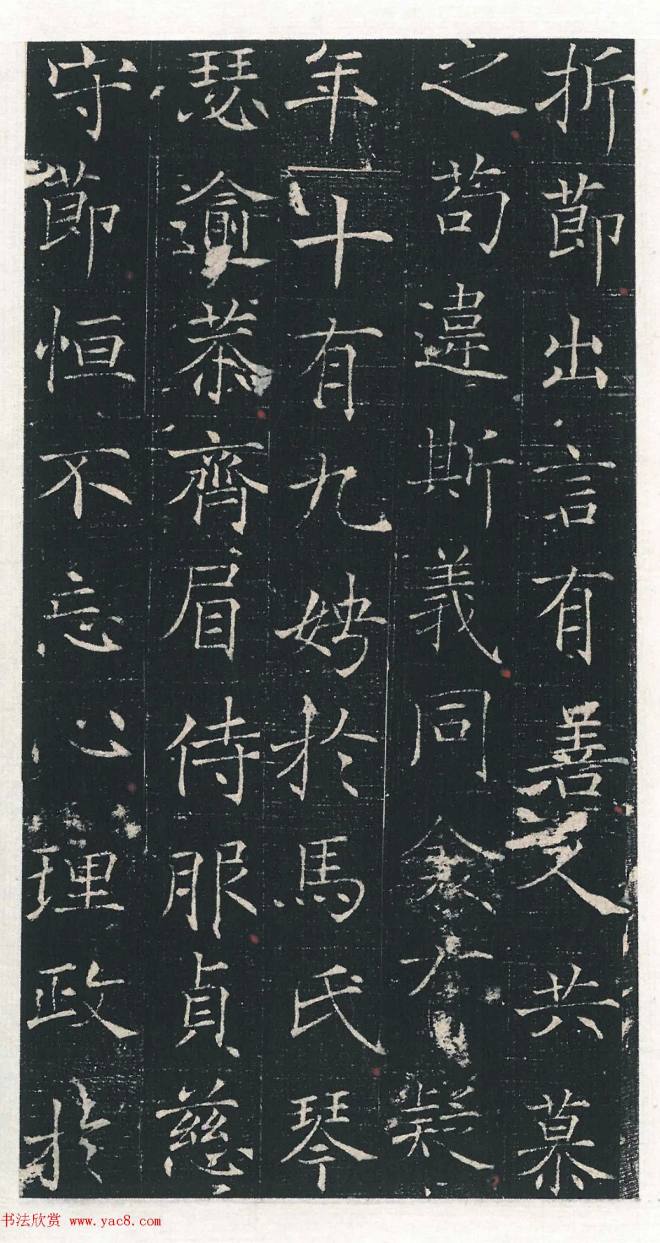 折節出言有善人共慕
之苟違斯義同衾不疑
年十有九娉於馬氏琴
瑟逾恭齊眉侍服貞慈
守節恒不忘心理政於
书法欣赏 www.yac8.com